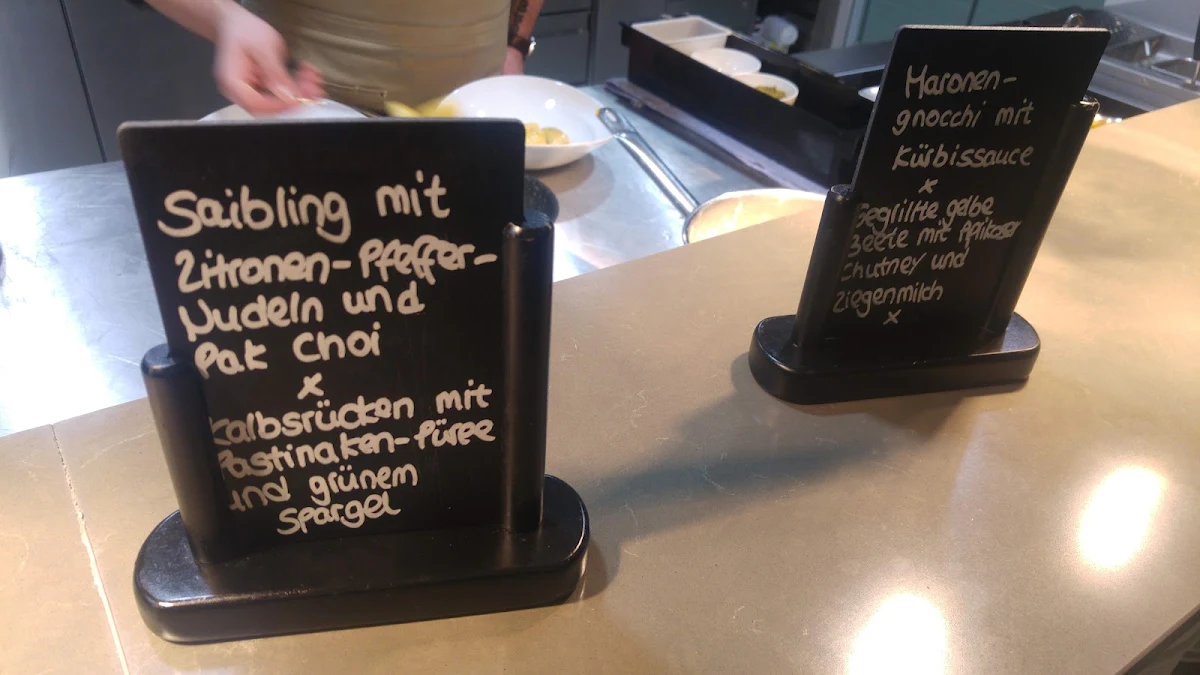 Saibling mit
Zitronen-Pfeffer-
Nudeln und
Pak Choi
x
Kalbsrücken mit
Pastinaken-Püree
und grünem
Spargel
Maronen-
gnocchi mit
Kürbissauce
x
Gegrillte gelbe
Beete mit Aprikosen
Chutney und
Ziegenmilch
x